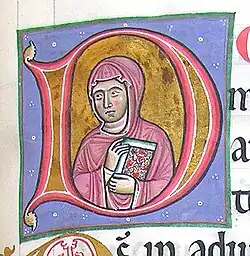 D
m
a
t
s̄ in adu